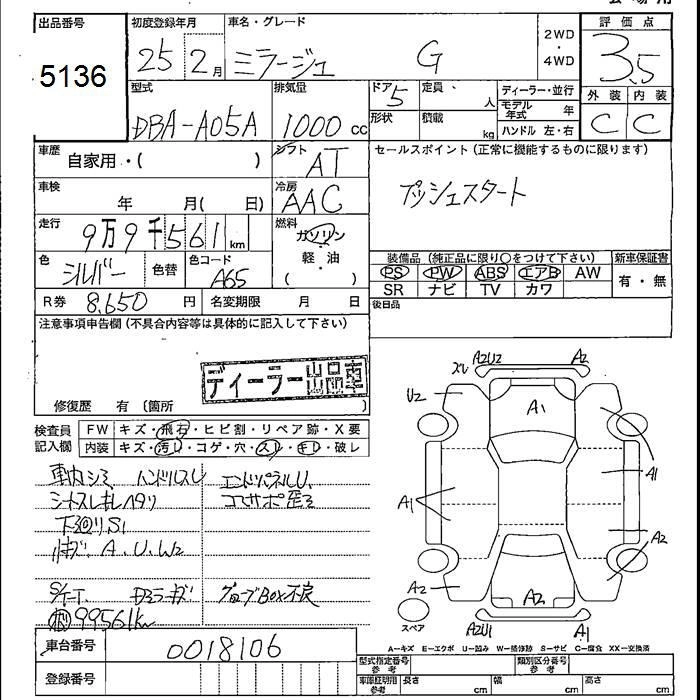 出品番号
5136
初度登録年月
25 2月
車名・グレード
ミラージュ G
2WD
・
4WD
評価点
3.5
外装 内装
C C
型式
DBA-A05A
排気量
1000 cc
ドア 5
形状
定員 人
積載 kg
ディーラー・並行
モデル年式 年
ハンドル 左・右
車歴
自家用・( )
シフト
AT
セールスポイント (正常に機能するものに限ります)
プッシュスタート
車検
年 月( 日)
冷房
AAC
走行
9万9千561km
燃料
ガソリン
軽・油
( )
色
シルバー
色替
色コード
A65
装備品 (純正品に限り○をつけて下さい)
PS PW ABS エアB AW
SR ナビ TV カワ
新車保証書
有・無
R券 8,650 円
名変期限 月 日
後日品
注意事項申告欄 (不具合内容等は具体的に記入して下さい)
ディーラー出品車
修復歴 有 (箇所 )
検査員記入欄
FW キズ・飛石・ヒビ割・リペア跡・X要
内装 キズ・汚レ・コゲ・穴・スレ・キレ・破レ
車内シミ ハンドルスレ
エンドパネルU
コアサポ歪ミ
下廻リS1
A.U.W2
グローブBOX不良
99561km
車台番号
0018106
登録番号
ズレ A2U2 A2
U2
A1
A1
A1
A2
A2
A2
A2U1 A1
スペア
A-キズ E-エクボ U-凹み W-補修跡 S-サビ C-腐食 XX-交換済
型式指定番号 参考
類別区分番号 参考
車庫証明用 参考
長さ cm
幅 cm
高さ cm